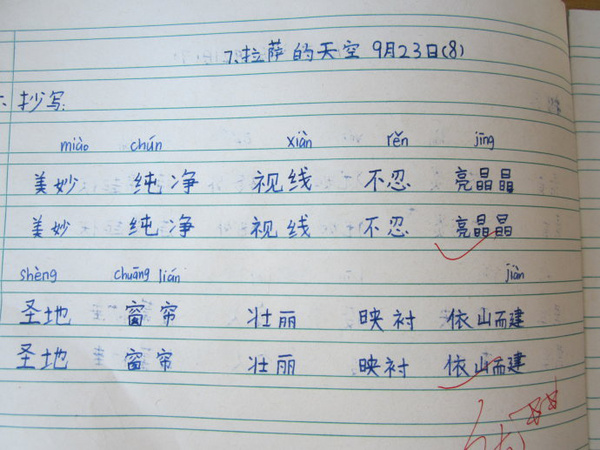 7、拉萨的天空 9月23日(8)
一、抄写:
miào chún xiàn rěn jīng
美妙 纯净 视线 不忍 亮晶晶
美妙 纯净 视线 不忍 亮晶晶
shèng chuāng lián jiàn
圣地 窗帘 壮丽 映衬 依山而建
圣地 窗帘 壮丽 映衬 依山而建